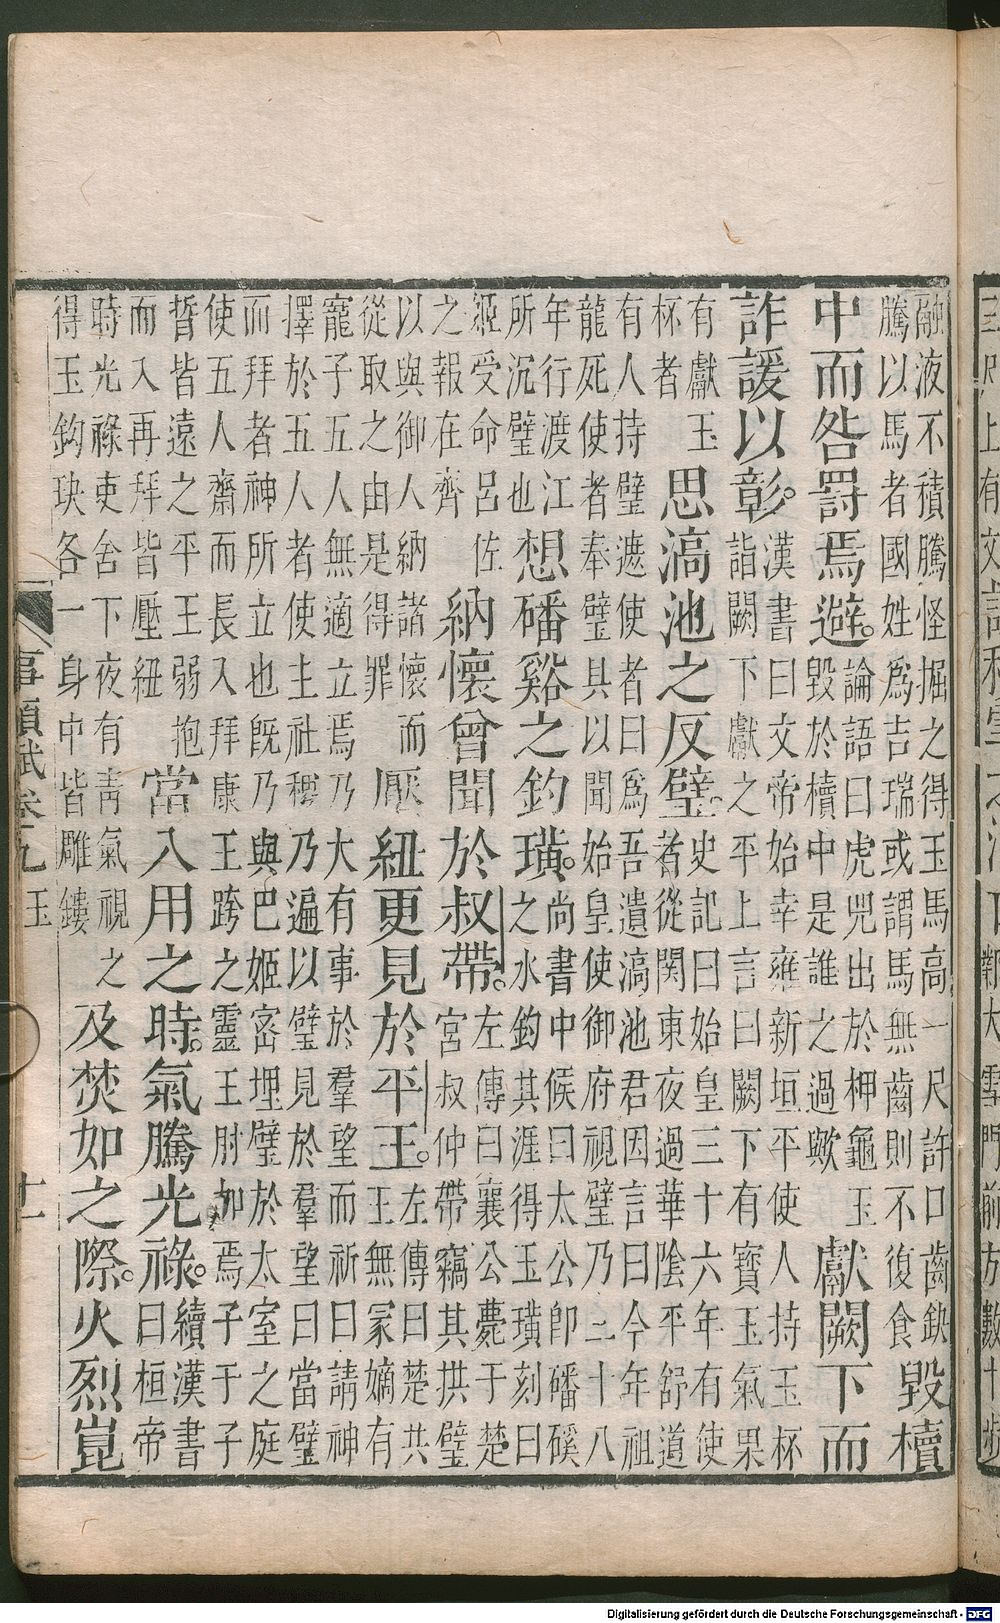 融液不積騰怪掘之得玉馬高一尺許口齒缺
騰以馬者國姓爲吉瑞或謂馬無齒則不復食
毀櫝
中而咎罸焉避。
論語曰虎兕出於柙龜玉
毀於櫝中是誰之過歟
獻闕下而
詐諼以彰。
漢書曰文帝始幸雍新垣平使人持玉杯
詣闕下獻之平上言曰闕下有寶玉氣果
有獻玉
杯者
思滈池之反璧。
史記曰始皇三十六年有使
者從關東夜過華陰平舒道
有人持璧遮使者曰爲吾遺滈池君因言曰今年祖
龍死使者奉璧具以聞始皇使御府視璧乃二十八
年行渡江
所沉璧也
想磻谿之釣璜。
尚書中候曰太公即磻磎
之水釣其涯得玉璜刻曰
姬受命呂佐
之報在齊
納懷曾聞於叔帶。
左傳曰襄公薨于楚
宮叔仲帶竊其拱璧
以與御人納諸懷而
從取之由是得罪
厭紐更見於平王。
左傳曰楚共
王無冢嫡有
寵子五人無適立焉乃大有事於羣望而祈曰請神
擇於五人者使主社稷乃遍以璧見於羣望曰當璧
而拜者神所立也既乃與巴姬宻埋璧於太室之庭
使五人齋而長入拜康王跨之靈王肘加焉子于子
晳皆遠之平王弱抱
而入再拜皆壓紐
當入用之時。氣騰光祿。
續漢書
曰桓帝
時光祿吏舍下夜有靑氣視之
得玉鈎玦各一身中皆雕鏤
及焚如之際。火烈崑
事類賦卷九 玉 十一
Digitalisierung gefördert durch die Deutsche Forschungsgemeinschaft - DFG